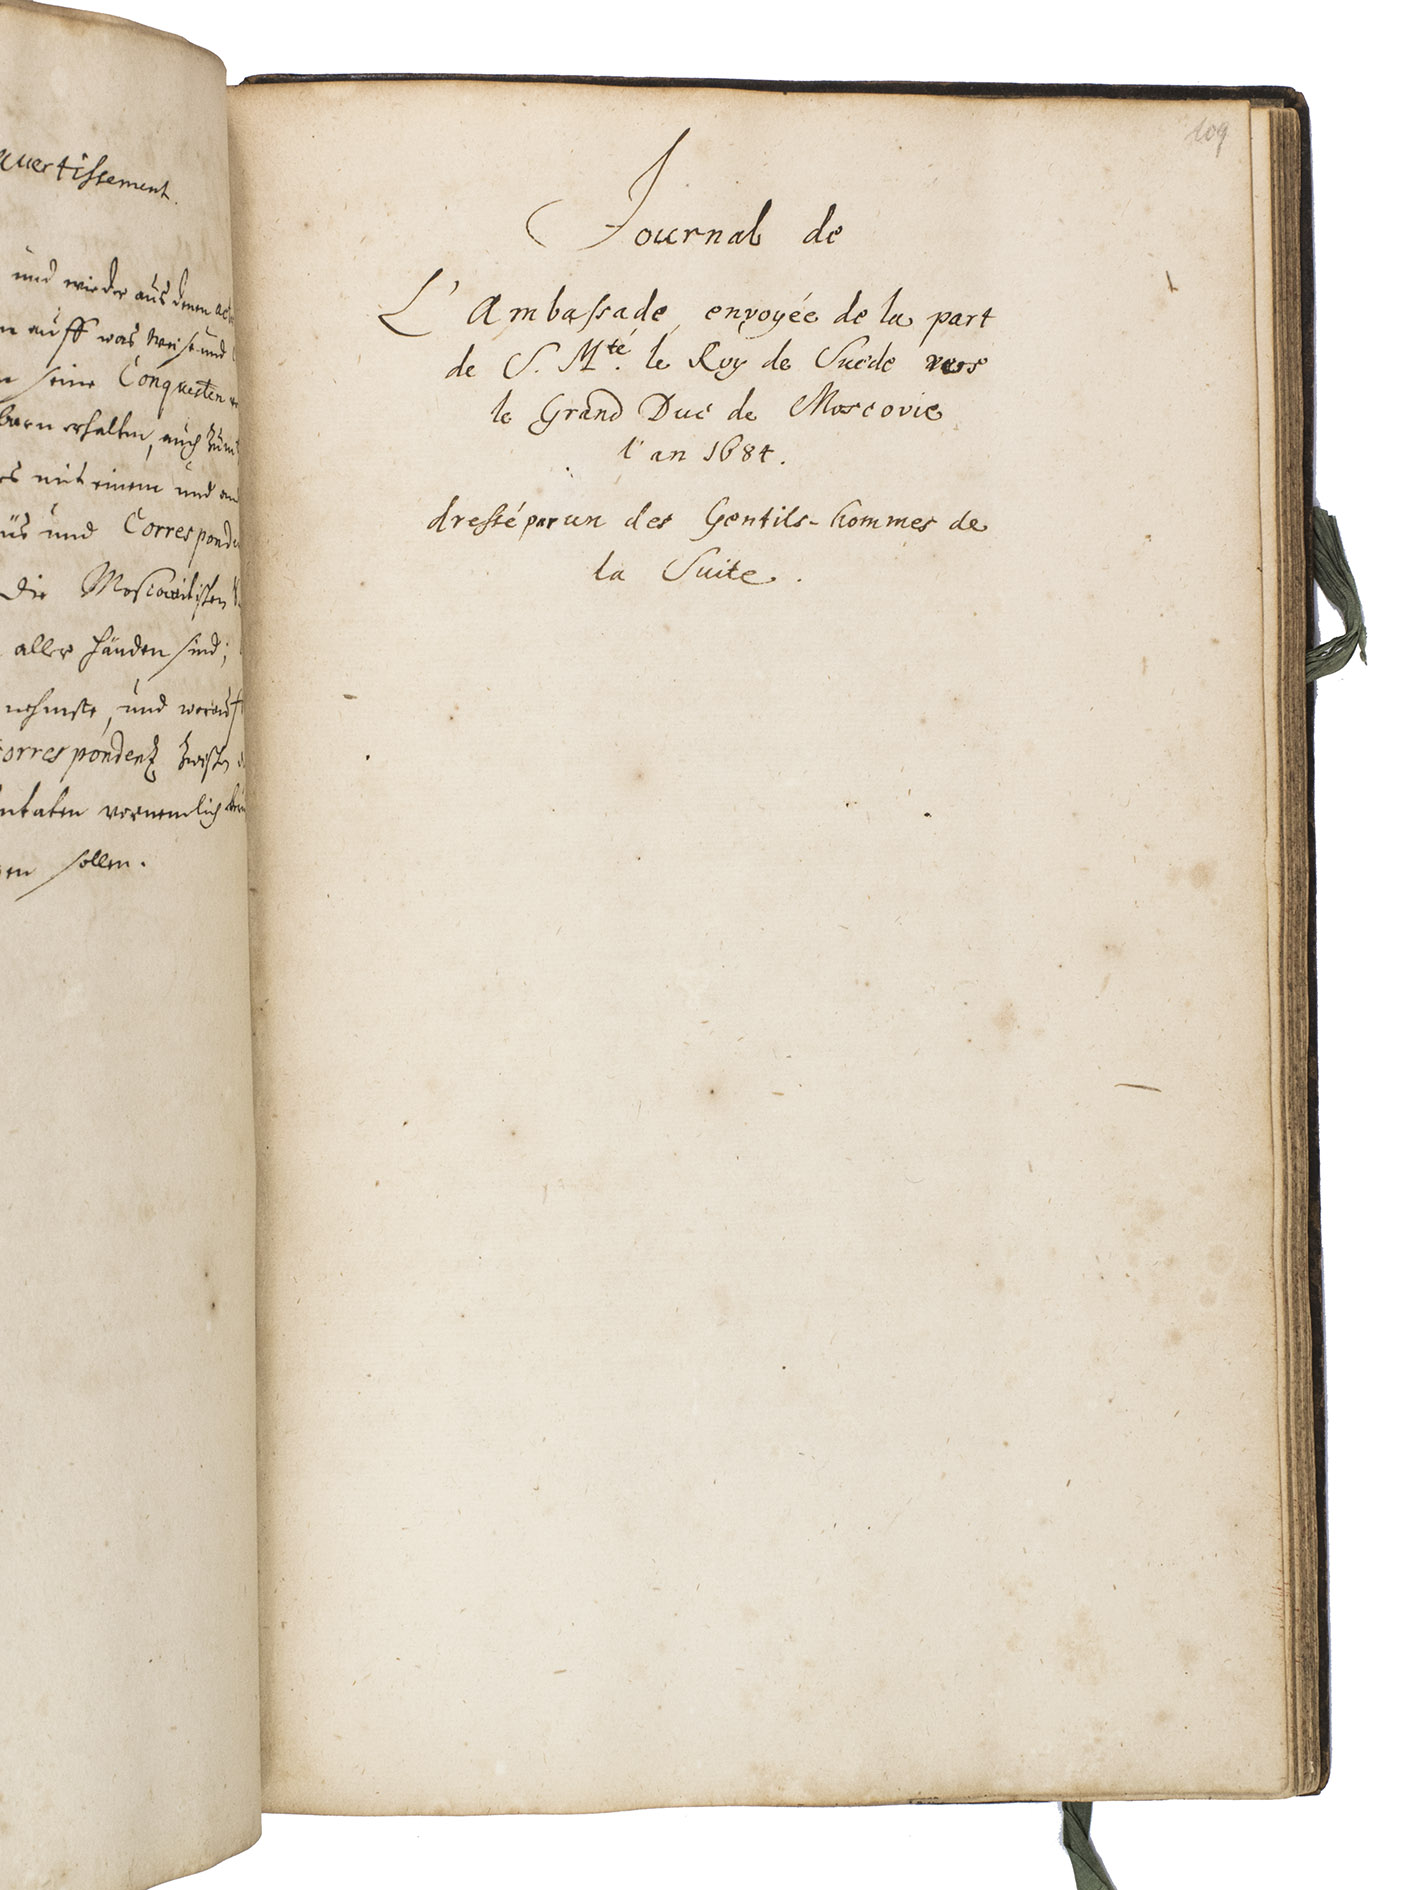 avertissement.
und wieder aus denen
auff was weise und
seine Conquesten
erhalten, auch
mit einem und
und Correspond
die Moscowitischen
aller händen sind;
nehmste, und worauf
Correspondentz zwischen
vornemlich
sollen.
109
Journal de
L'Ambassade envoyée de la part
de S. Mté. le Roy de Suede vers
le Grand Duc de Moscovie
l'an 1684.
dressé par un des Gentils-hommes de
la Suite.